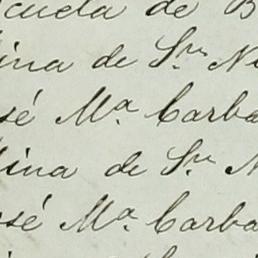 cuela de B
ina de Sn. Ni
sé Mª. Carba
lina de Sn. N
osé Mª. Carba